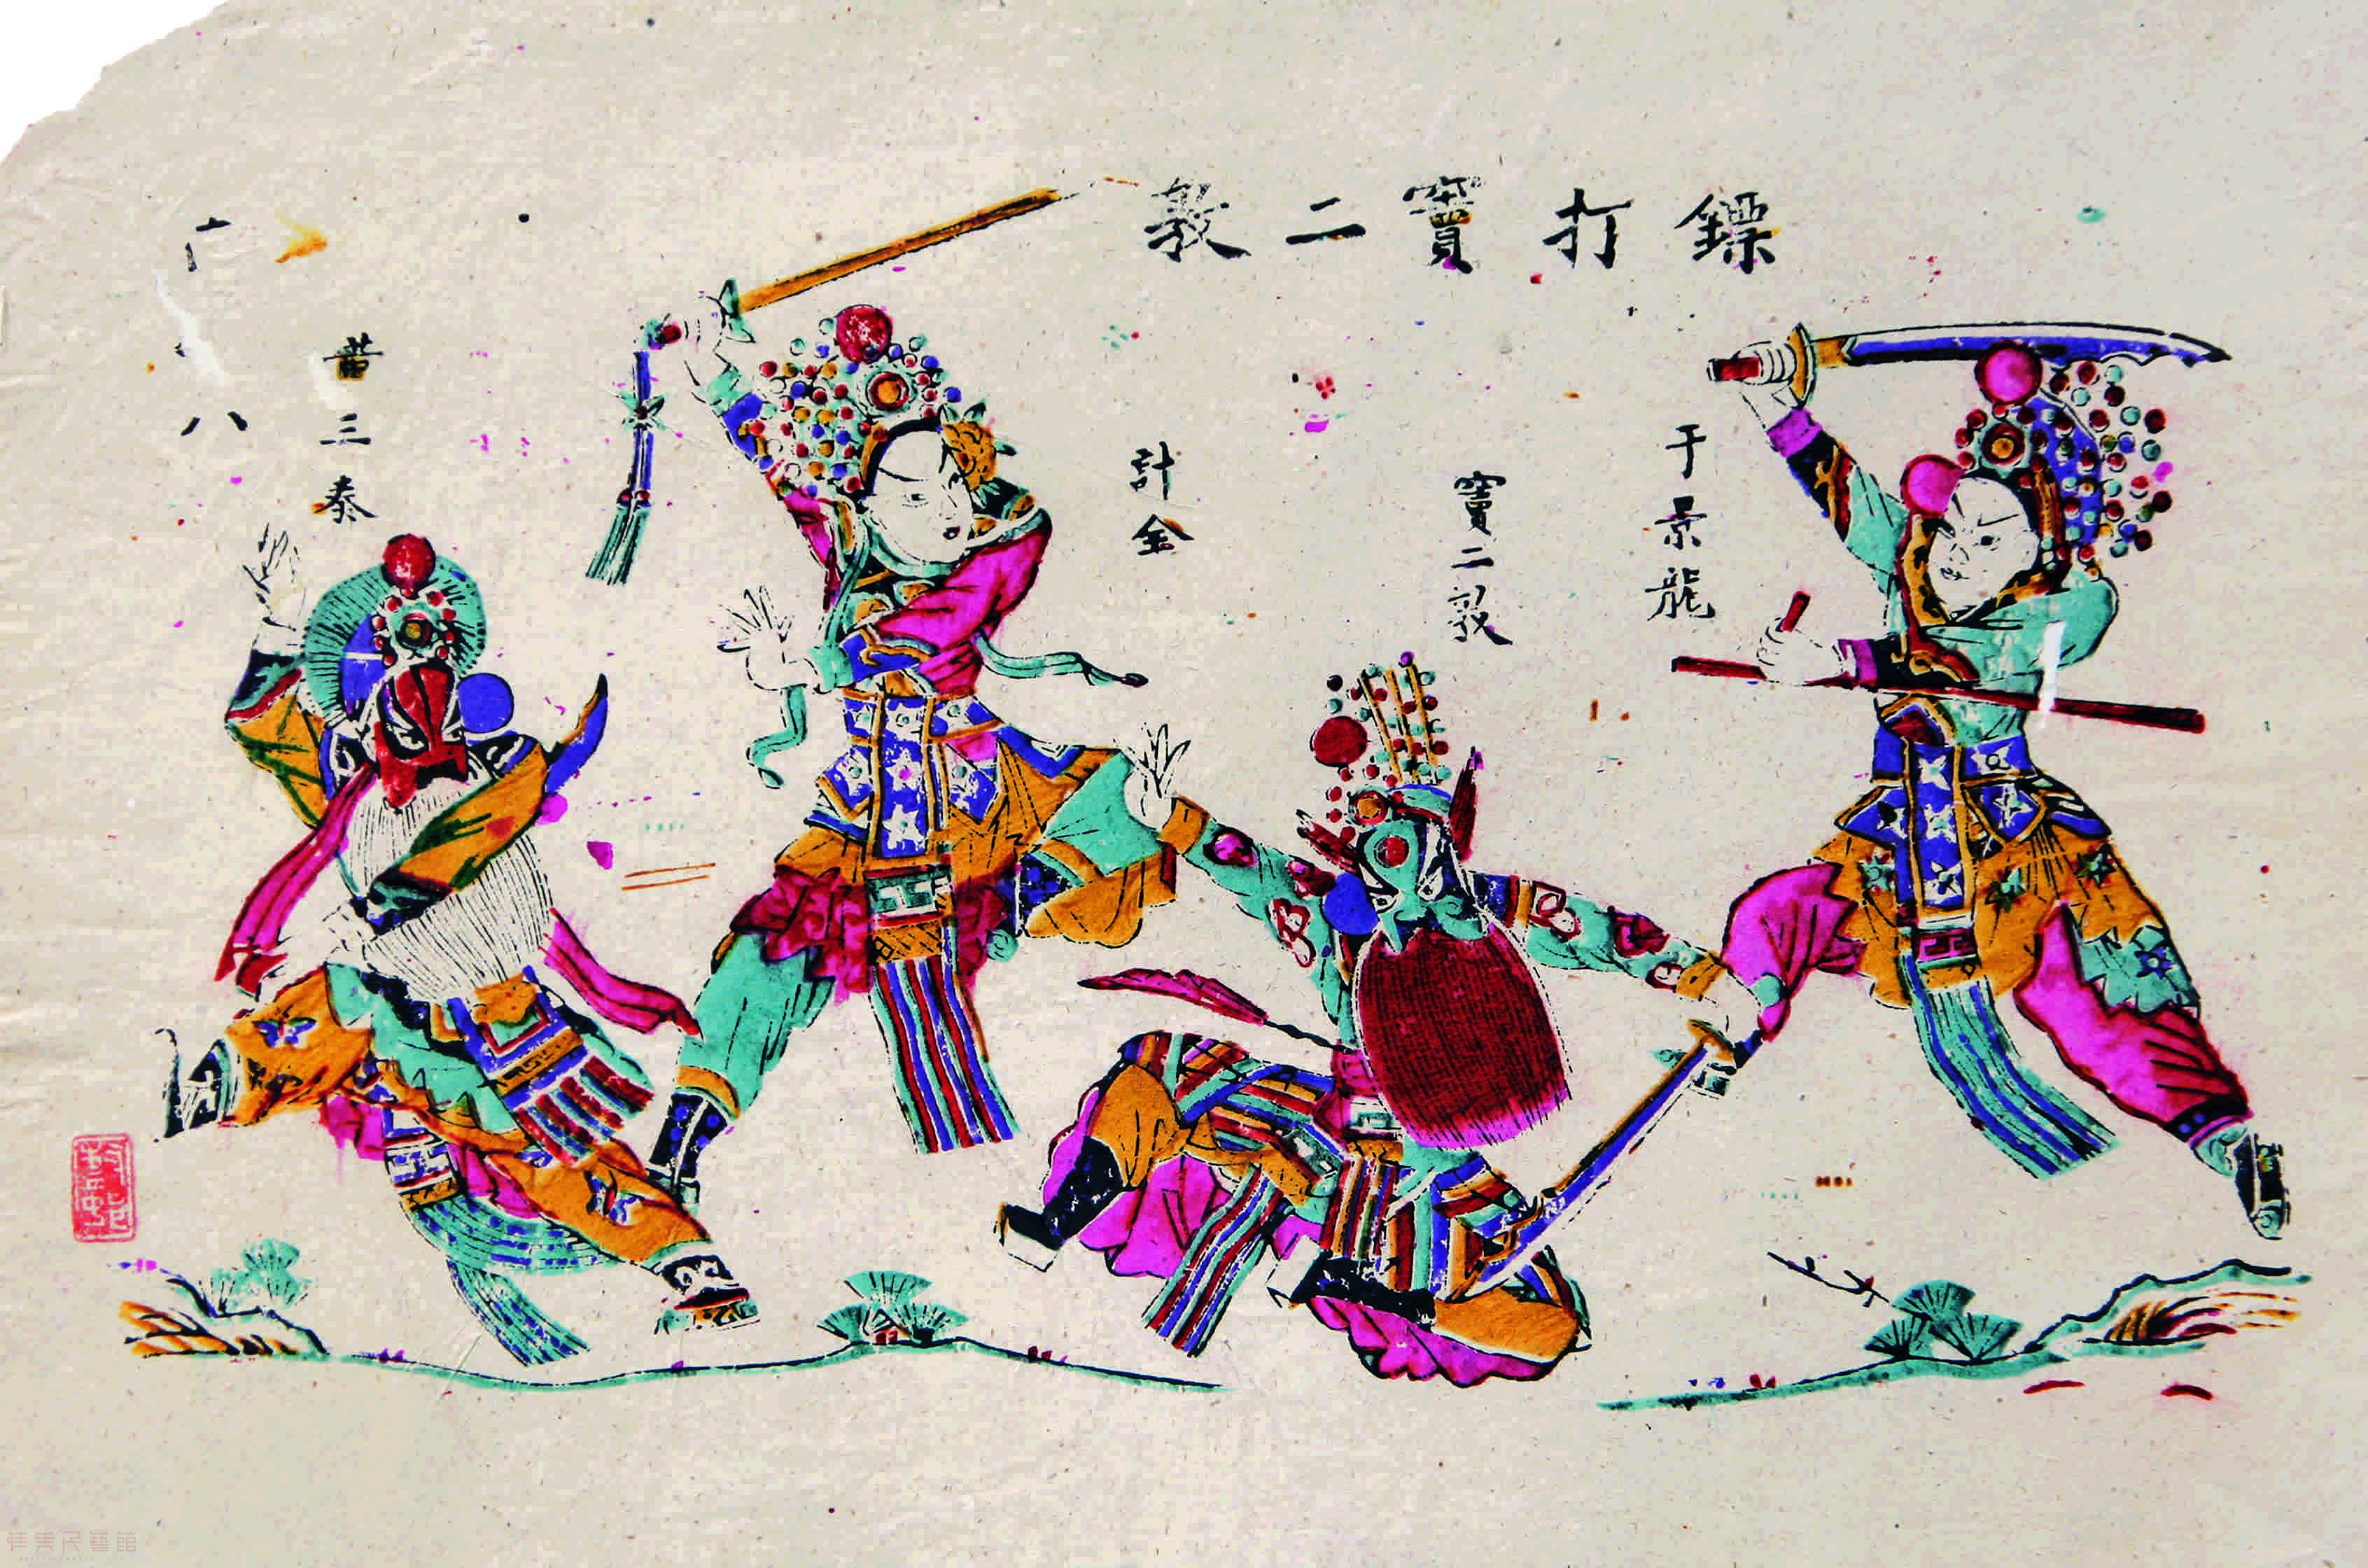 鏢打竇二敦
于景龍
竇二敦
計金
黃三泰
八
佳美民藝館